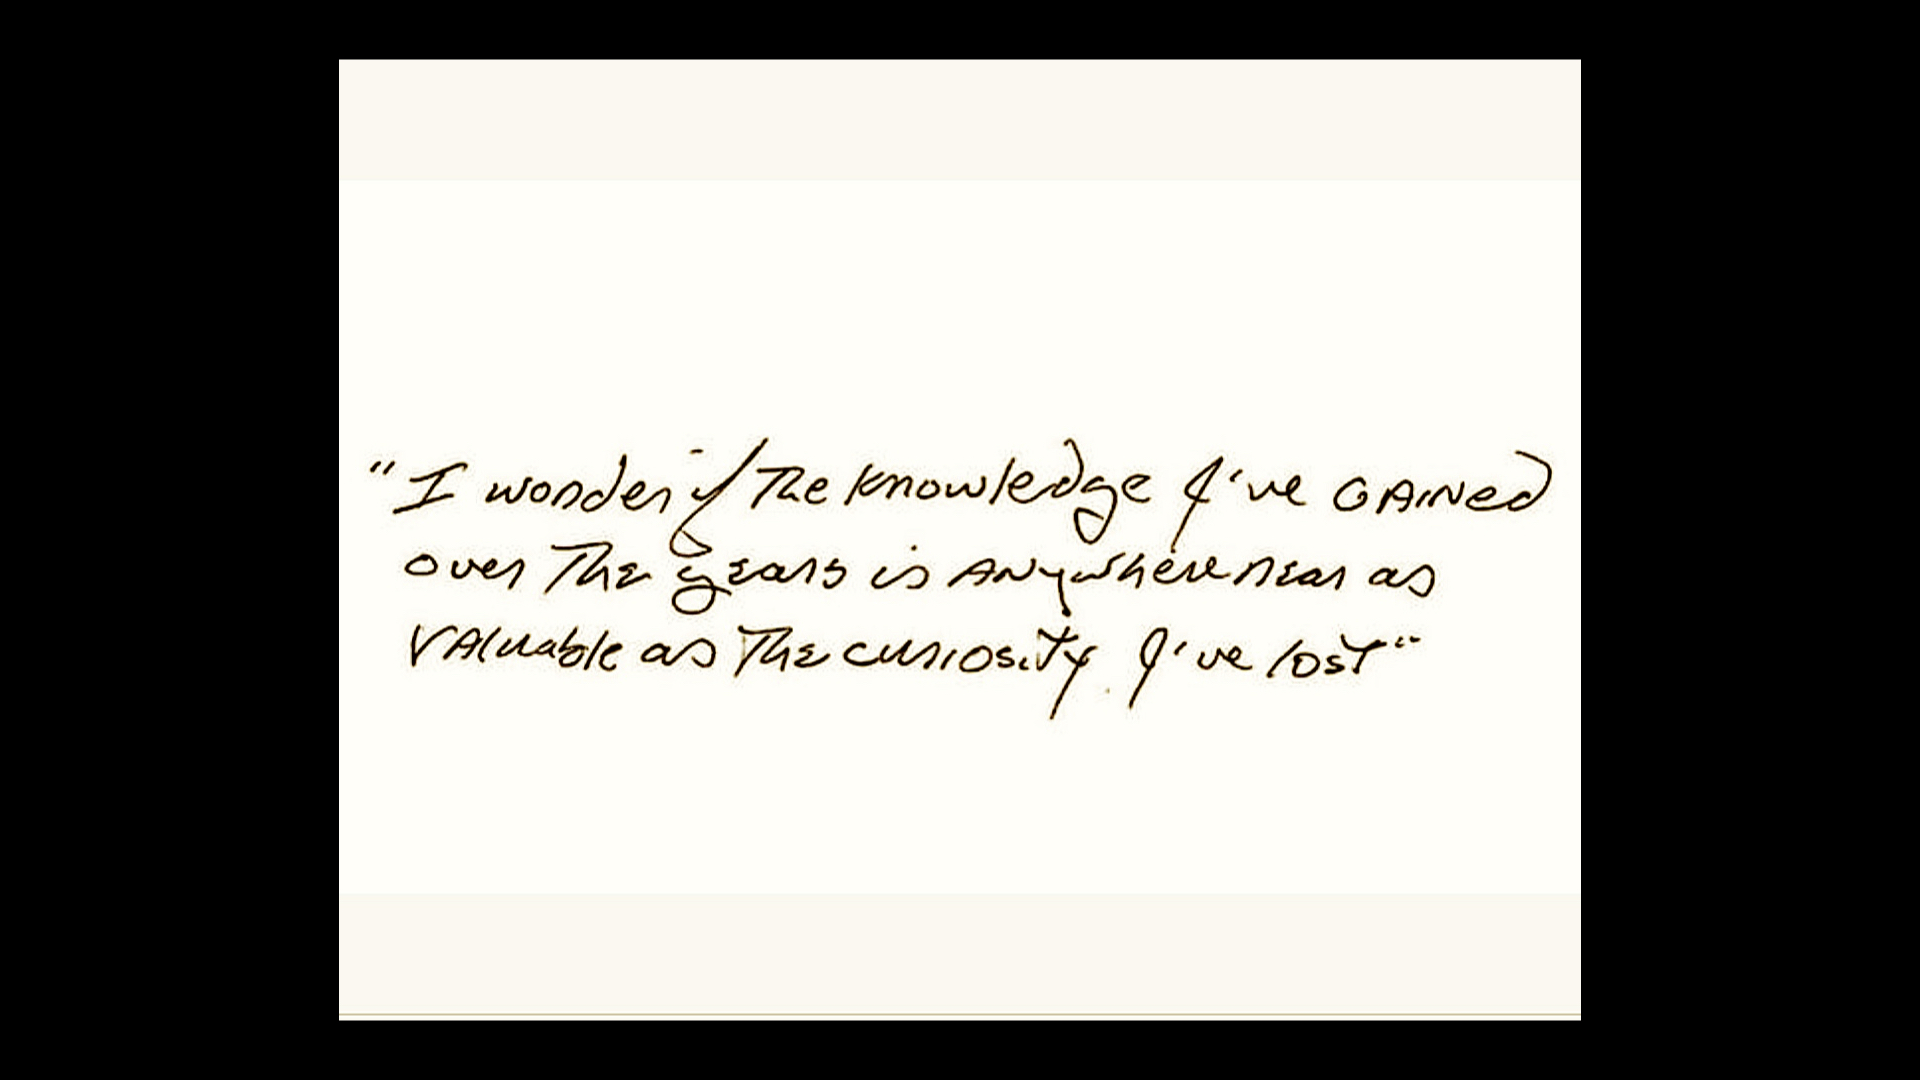 "I wonder if The knowledge I've GAINed
over The years is ANywhere near as
VAluable as The curiosity I've lost"